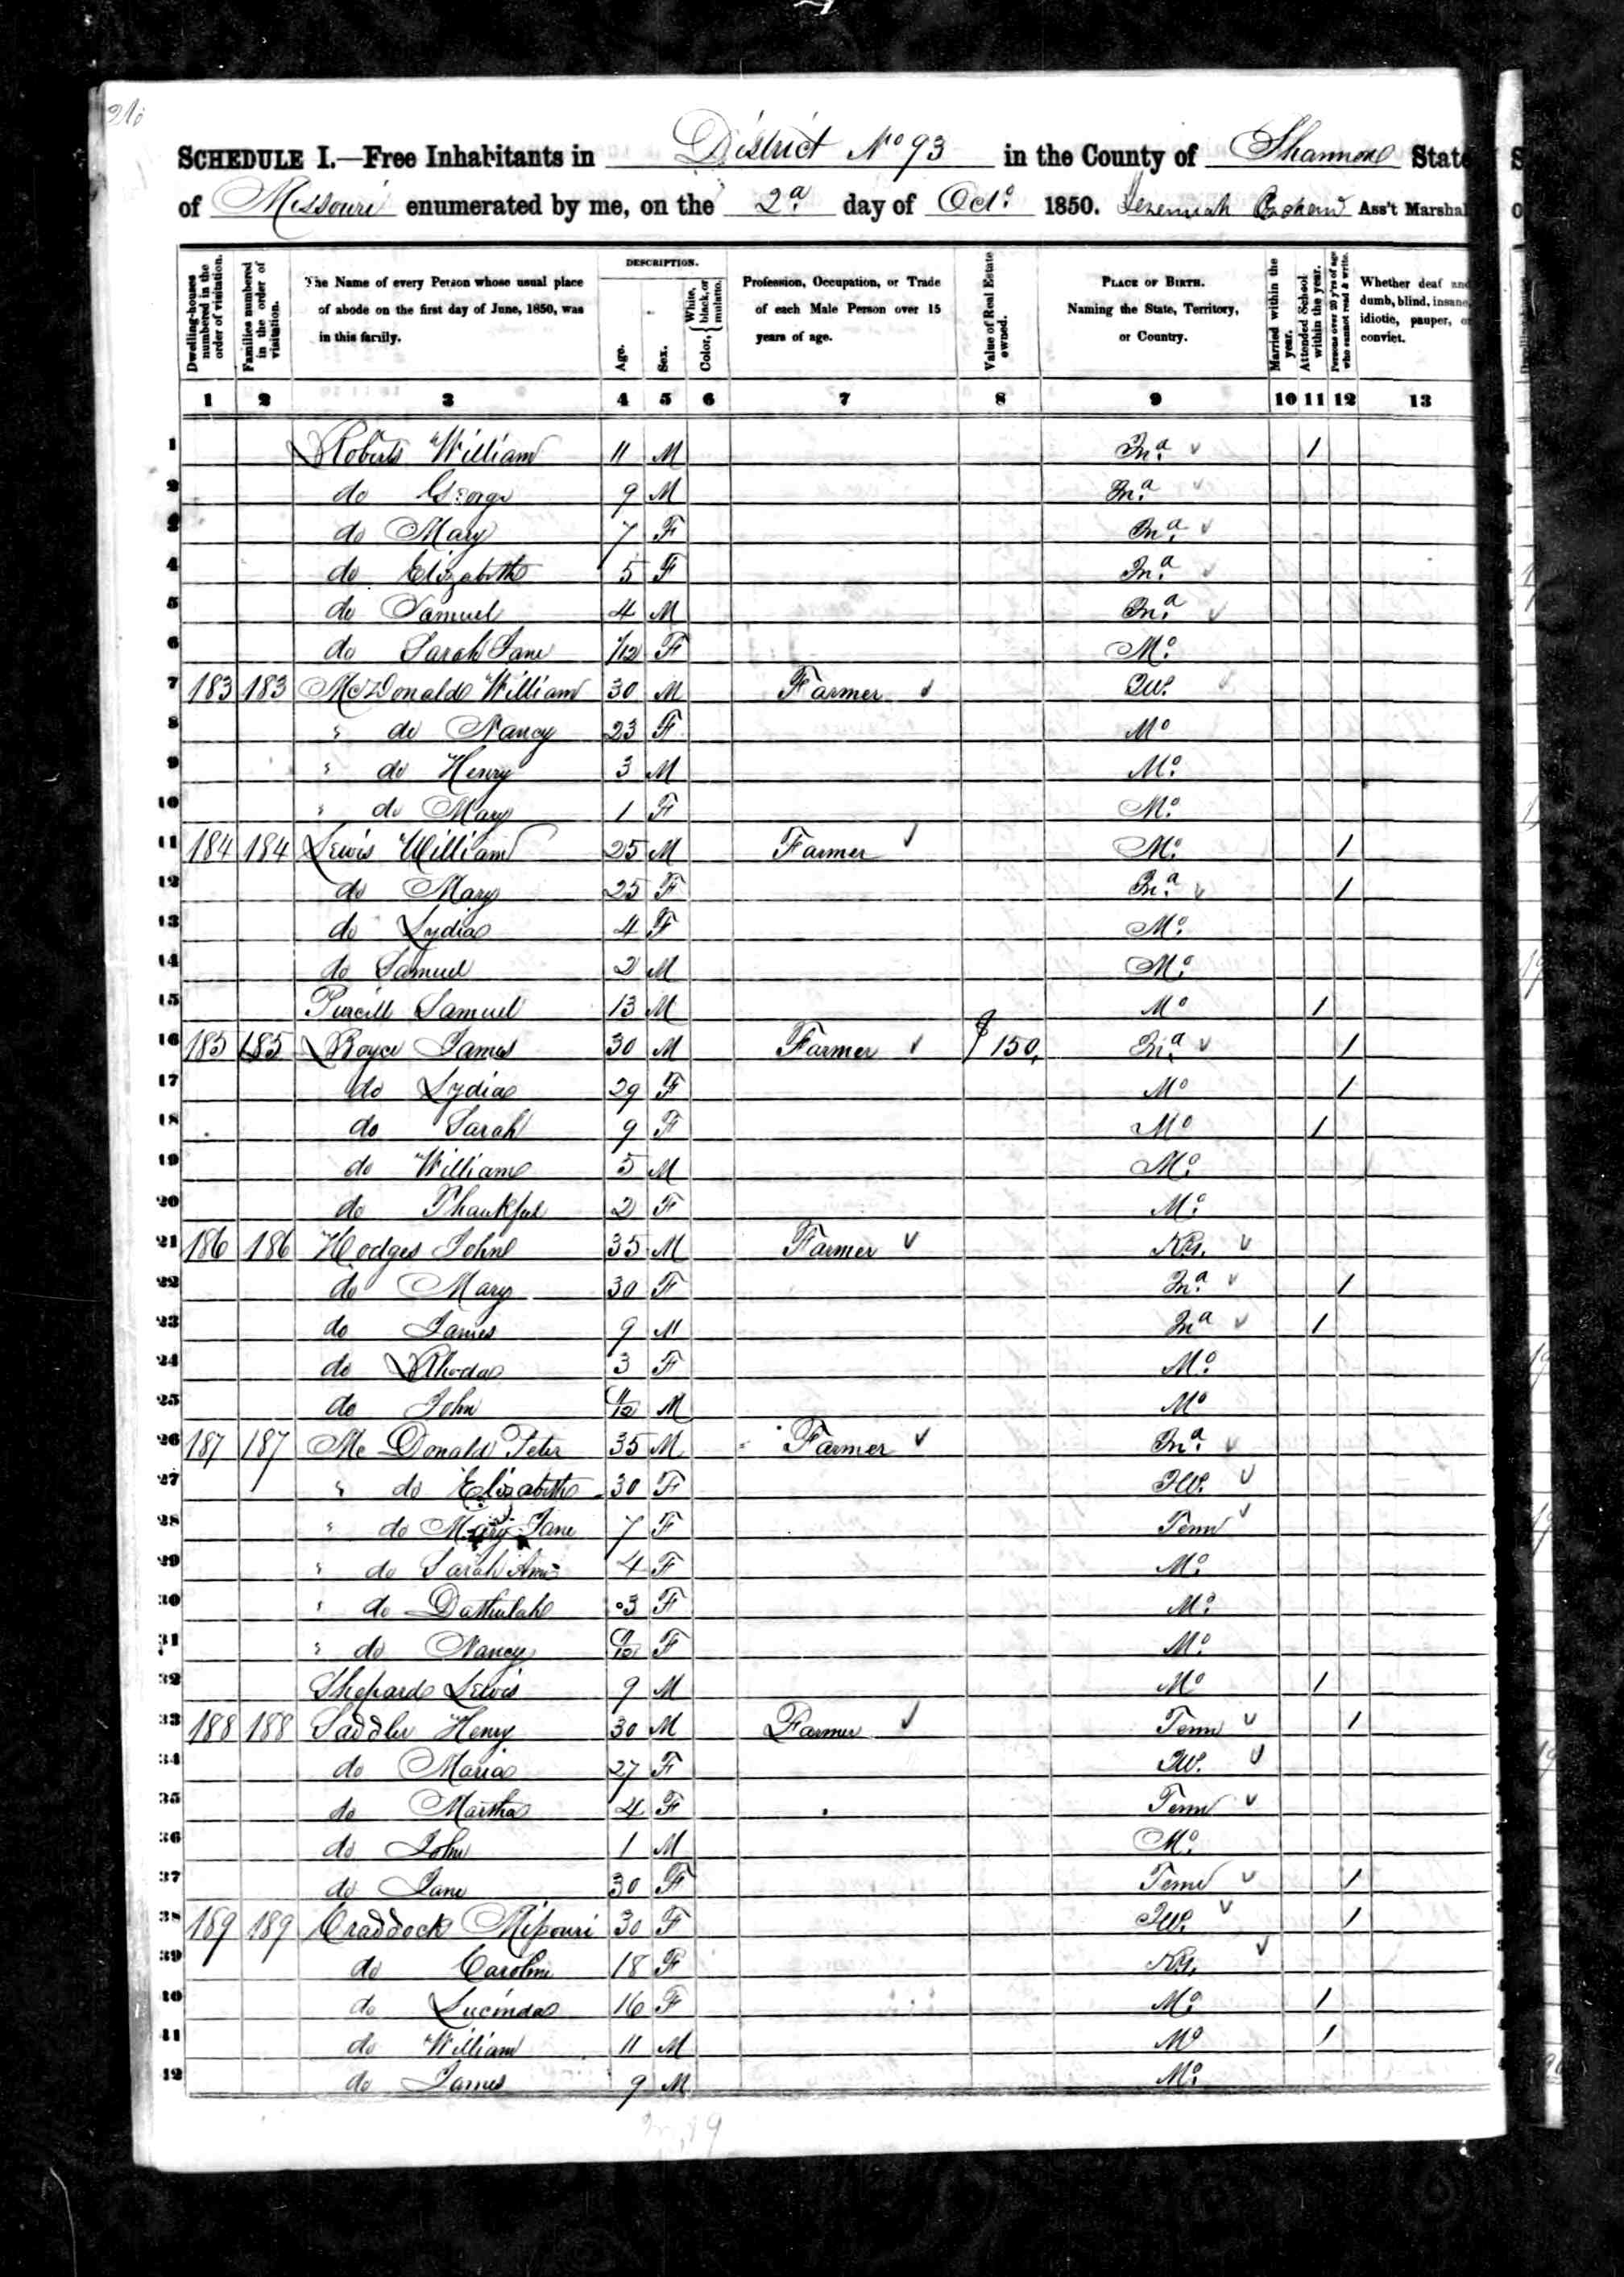 SCHEDULE I.—Free Inhabitants in District No 93 in the County of Shannon State
of Missouri enumerated by me, on the 2d day of Oct. 1850. Jeremiah Ass't Marshal
Dwelling-houses numbered in the order of visitation.
Families numbered in the order of visitation.
The Name of every Person whose usual place of abode on the first day of June, 1850, was in this family.
DESCRIPTION.
Age.
Sex.
Color, { White, black, or mulatto.
Profession, Occupation, or Trade of each Male Person over 15 years of age.
Value of Real Estate owned.
PLACE OF BIRTH. Naming the State, Territory, or Country.
Married within the year.
Attended School within the year.
Persons over 20 y'rs of age who cannot read & write.
Whether deaf and dumb, blind, insane, idiotic, pauper, or convict.
1 2 3 4 5 6 7 8 9 10 11 12 13
1 Roberts William 11 M In.a 1
2 do George 9 M In.a
3 do Mary 7 F In.a
4 do Elizabeth 5 F In.a
5 do Samuel 4 M In.a
6 do Sarah Jane 1/12 F Mo.
7 183 183 McDonald William 30 M Farmer Ill.
8 " do Nancy 23 F Mo
9 " do Henry 3 M Mo.
10 " do Mary 1 F Mo.
11 184 184 Lewis William 25 M Farmer Mo. 1
12 do Mary 25 F In.a 1
13 do Lydia 4 F Mo.
14 do Samuel 2 M Mo.
15 Purcill Samuel 13 M Mo 1
16 185 185 Royce James 30 M Farmer $150. In.a 1
17 do Lydia 29 F Mo 1
18 do Sarah 9 F Mo 1
19 do William 5 M Mo.
20 do Thankful 2 F Mo.
21 186 186 Hodges John 35 M Farmer Ky.
22 do Mary 30 F In.a 1
23 do James 9 M Ina 1
24 do Rhoda 3 F Mo.
25 do John /12 M Mo
26 187 187 Mc Donald Peter 35 M Farmer In.a
27 " do Elizabeth 30 F Ill.
28 " do Mary Jane 7 F Tenn
29 " do Sarah Ann 4 F Mo.
30 " do 3 F Mo.
31 " do Nancy /12 F Mo.
32 Shepard Lewis 9 M Mo 1
33 188 188 Saddler Henry 30 M Farmer Tenn 1
34 do Maria 27 F Ill.
35 do Martha 4 F Tenn
36 do John 1 M Mo.
37 do Jane 30 F Tenn 1
38 189 189 Craddock Missouri 30 F Ill. 1
39 do Caroline 18 F Ky.
40 do Lucinda 16 F Mo. 1
41 do William 11 M Mo 1
42 do James 9 M Mo.